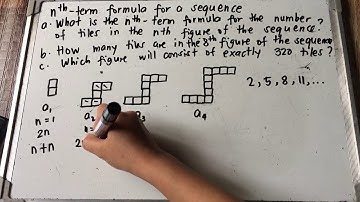 nth-term formula for a sequence
a. What is the nth-term formula for the number
of tiles in the nth figure of the sequence?
b. How many tiles are in the 8th figure of the sequence
c. Which figure will consist of exactly 320 tiles?
2, 5, 8, 11, ...
a₁ a₂ a₃ a₄
n = 1
2n
n+n